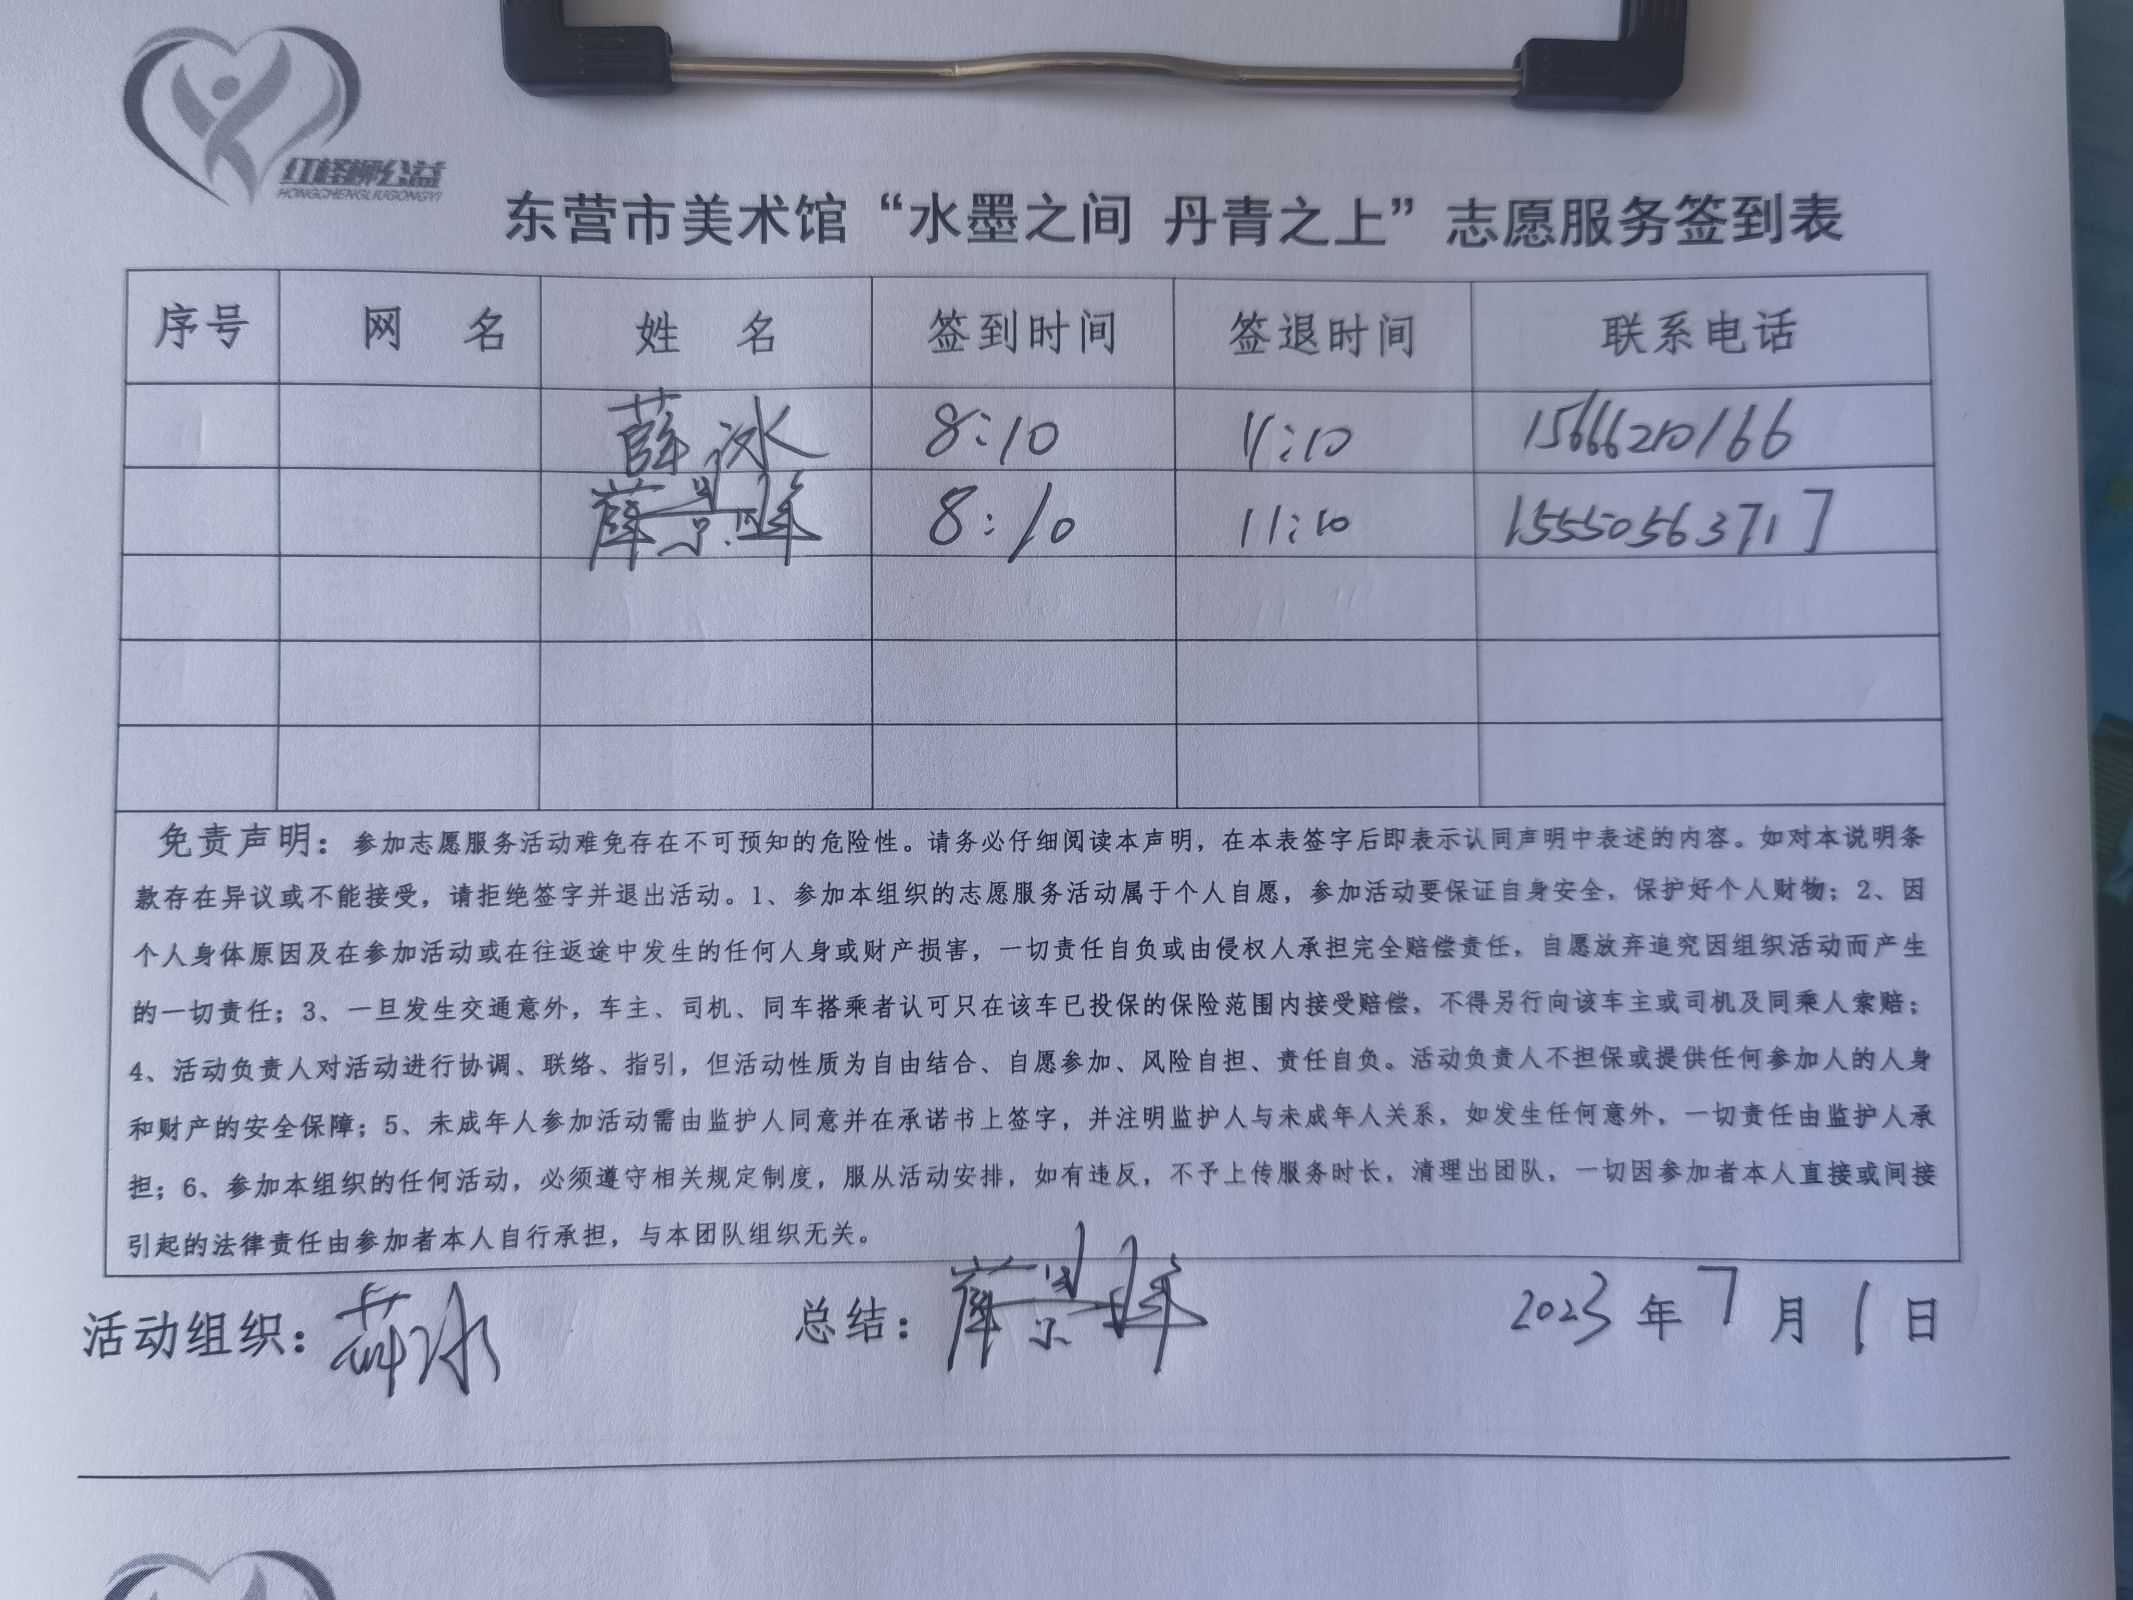 红柽柳公益
HONGCHENGLIUGONGYI
东营市美术馆“水墨之间 丹青之上”志愿服务签到表
序号 网 名 姓 名 签到时间 签退时间 联系电话
薛冰 8:10 11:10 15666210166
薛景峰 8:10 11:10 15550563717
免责声明：参加志愿服务活动难免存在不可预知的危险性。请务必仔细阅读本声明，在本表签字后即表示认同声明中表述的内容。如对本说明条
款存在异议或不能接受，请拒绝签字并退出活动。1、参加本组织的志愿服务活动属于个人自愿，参加活动要保证自身安全，保护好个人财物；2、因
个人身体原因及在参加活动或在往返途中发生的任何人身或财产损害，一切责任自负或由侵权人承担完全赔偿责任，自愿放弃追究因组织活动而产生
的一切责任；3、一旦发生交通意外，车主、司机、同车搭乘者认可只在该车已投保的保险范围内接受赔偿，不得另行向该车主或司机及同乘人索赔；
4、活动负责人对活动进行协调、联络、指引，但活动性质为自由结合、自愿参加、风险自担、责任自负。活动负责人不担保或提供任何参加人的人身
和财产的安全保障；5、未成年人参加活动需由监护人同意并在承诺书上签字，并注明监护人与未成年人关系，如发生任何意外，一切责任由监护人承
担；6、参加本组织的任何活动，必须遵守相关规定制度，服从活动安排，如有违反，不予上传服务时长，清理出团队，一切因参加者本人直接或间接
引起的法律责任由参加者本人自行承担，与本团队组织无关。
活动组织：薛冰 总结：薛景峰 2023年7月1日